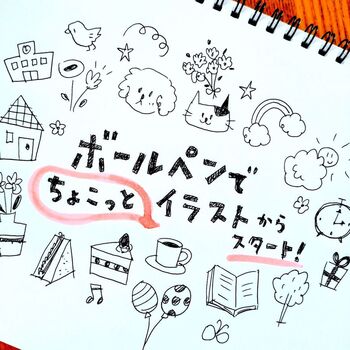 ボールペンで
ちょこっと イラストから
スタート!